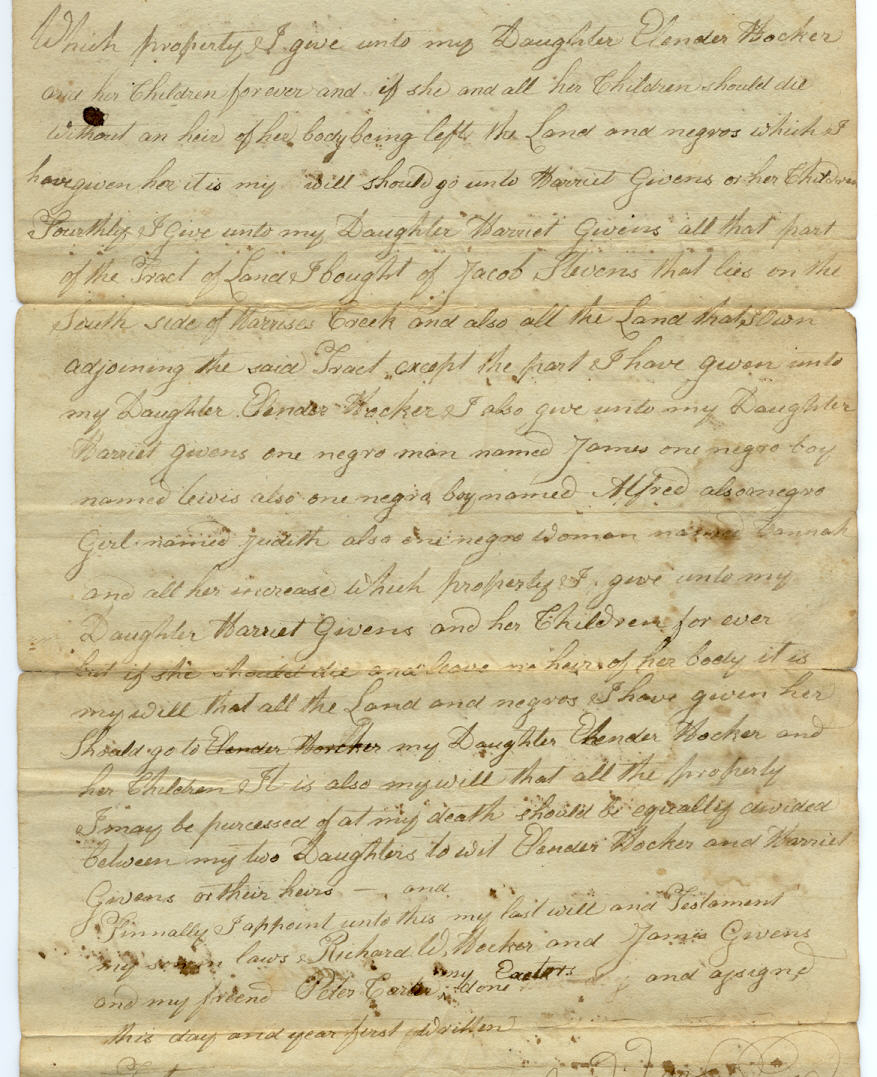 Which property I give unto my Daughter Elender Hocker
and her Children forever and if she and all her Children should die
without an heir of her body being left the Land and negros which I
have given her it is my will should go unto Harriet Givens or her Children
Fourthly I Give unto my Daughter Harriet Givens all that part
of the Tract of Land I bought of Jacob Stevens that lies on the
South side of Harrises Creek and also all the Land that I own
adjoining the said Tract except the part I have given unto
my Daughter Elender Hocker I also give unto my Daughter
Harriet Givens one negro man named James one negro boy
named Lewis also one negro boy named Alfred also negro
Girl named Judith also one negro Woman named Hannah
and all her increase Which property I give unto my
Daughter Harriet Givens and her Children for ever
but if she should die and leave no heir of her body it is
my will that all the Land and negros I have given her
Should go to Elender Horcker my Daughter Elender Hocker and
her Children It is also my will that all the property
I may be purcessed of at my death should be eqirally divided
between my two Daughters to wit Elender Hocker and Harriet
Givens or their heirs — and
Finnally I appoint unto this my last will and Testament
my son in laws Richard W. Hocker and James Givens
and my friend Peter Carter my Exetors done and assigned
this day and year first Written